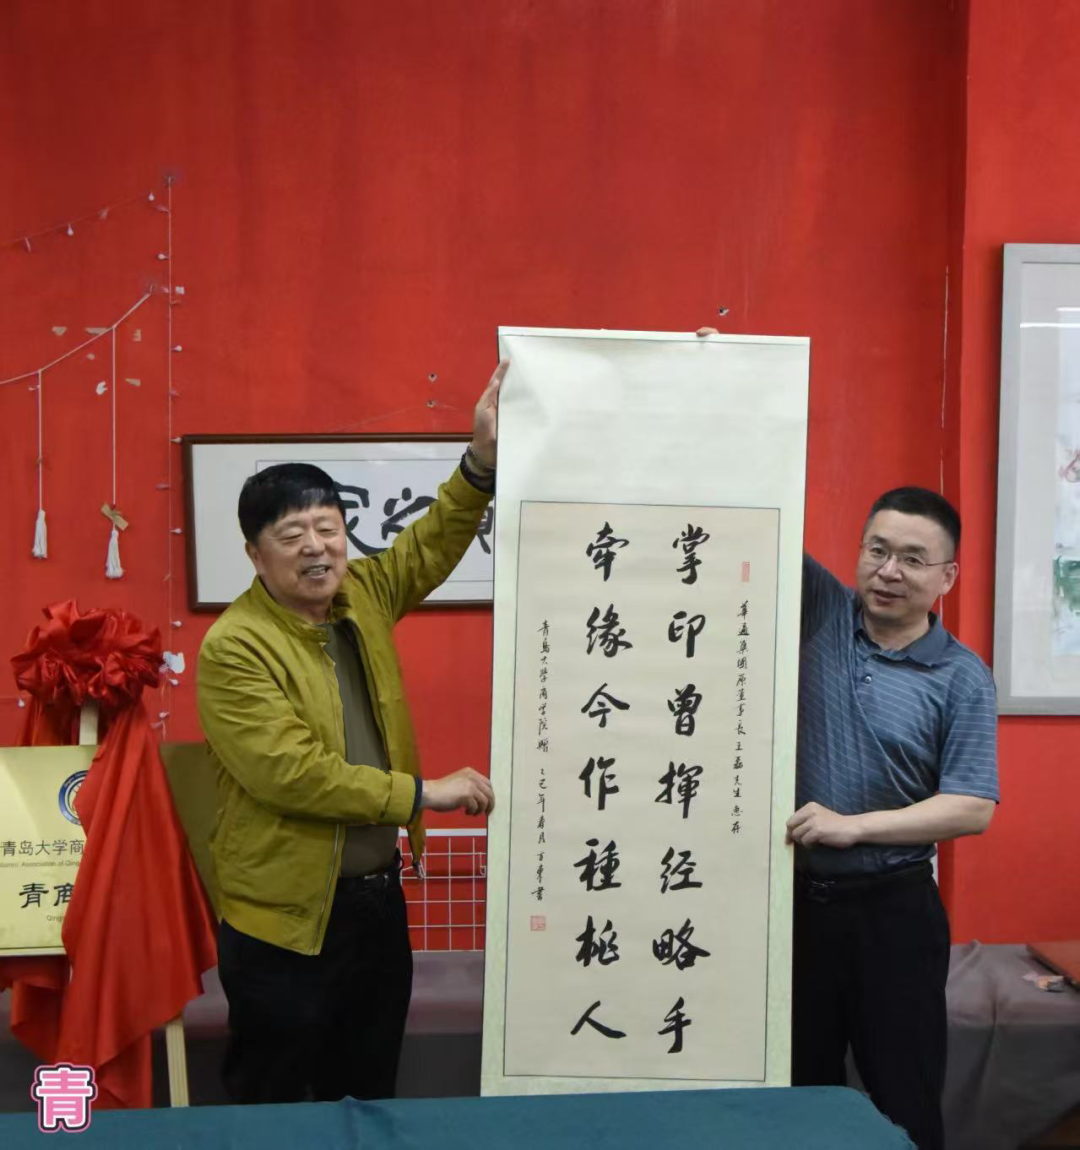 掌印曾揮经略手
牽缘今作種桃人
華通集團原董事長王磊先生惠存
青島大学商学院赠 乙巳年春月 方東書
青岛大学商
青商
青